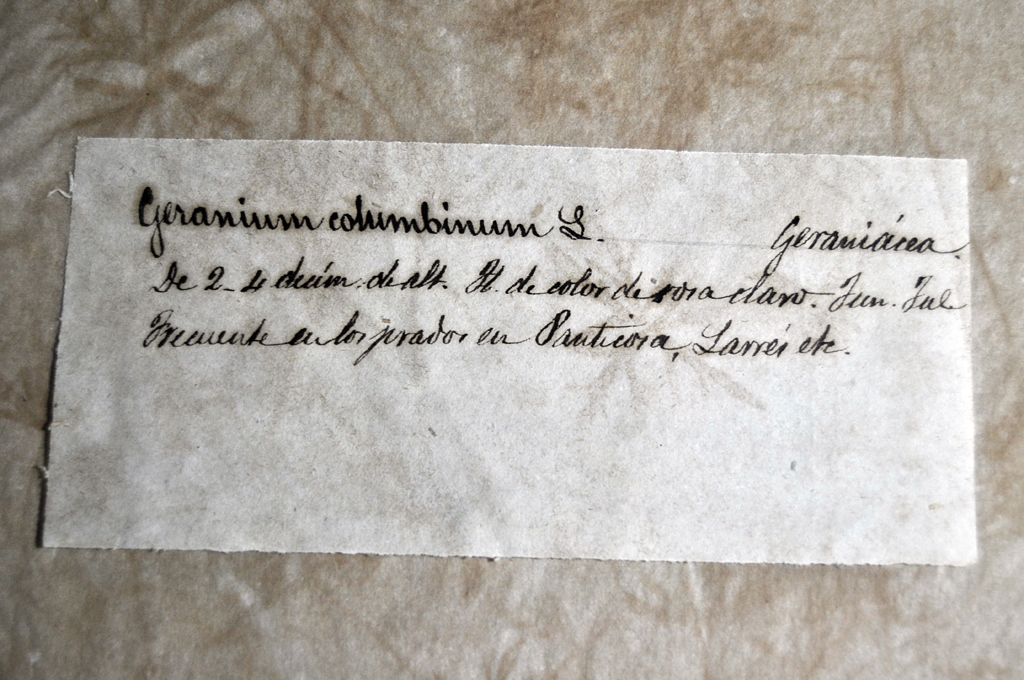 Geranium columbinum L. Geraniácea.
De 2-4 decím. de alt. Fl. de color de rosa claro. Jun. Jul
Frecuente en los prados en Panticosa, Larrés etc.